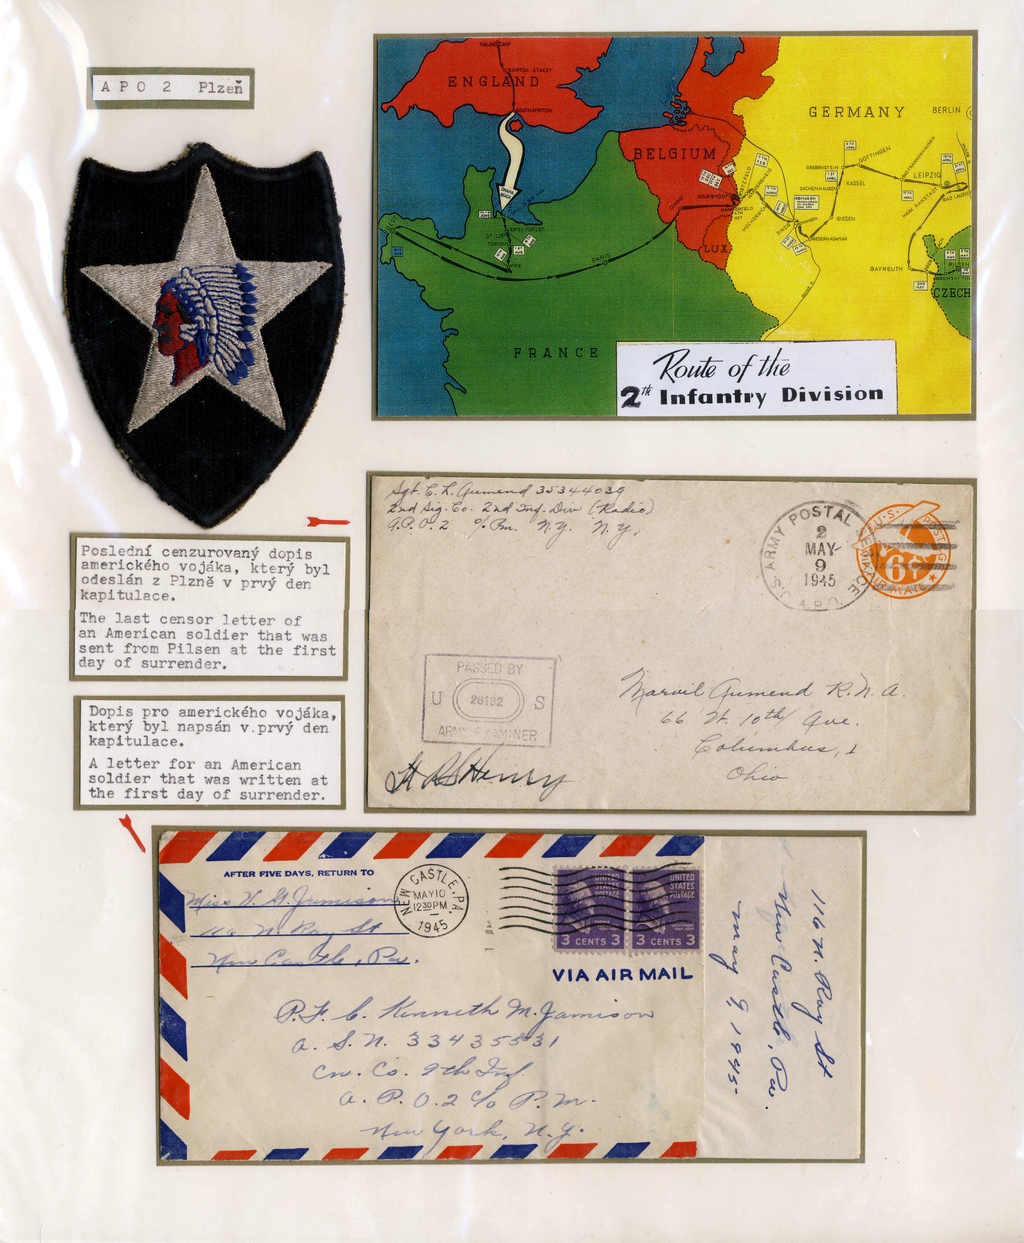 A P O 2 Plzeň
ENGLAND
BARTON STACEY
SOUTHAMPTON
BELGIUM
LUX
GERMANY
BERLIN
GOTTINGEN
KASSEL
LEIPZIG
SACHENHAUSEN
GIESEN
BAYREUTH
PILSEN
CZECH
ST LO
PARIS
FRANCE
Route of the
2th Infantry Division
Sgt. C. L. Aumend 35344039
2nd Sig. Co. 2nd Inf. Div (Radio)
A.P.O. 2 c/o Pm. N.Y. N.Y.
U.S. ARMY POSTAL SERVICE
2
MAY
9
1945
A.P.O.
U.S. POSTAGE
6¢
VIA AIR MAIL
PASSED BY
U 26132 S
ARMY EXAMINER
Marvil Aumend R.N.A.
66 W. 10th Ave.
Columbus,
Ohio
Poslední cenzurovaný dopis
amerického vojáka, který byl
odeslán z Plzně v prvý den
kapitulace.
The last censor letter of
an American soldier that was
sent from Pilsen at the first
day of surrender.
Dopis pro amerického vojáka,
který byl napsán v prvý den
kapitulace.
A letter for an American
soldier that was written at
the first day of surrender.
AFTER FIVE DAYS, RETURN TO
Miss V. G. Jamison
116 N. Ray St
New Castle, Pa.
NEW CASTLE, PA.
MAY 10
12 30 PM
1945
UNITED STATES POSTAGE
3 CENTS 3
UNITED STATES POSTAGE
3 CENTS 3
VIA AIR MAIL
P.F.C. Kenneth M. Jamison
A. S. N. 33435531
Cn. Co. 9th Inf.
A. P. O. 2 c/o P. M.
New York, N.Y.
116 N. Ray St
New Castle, Pa.
May 9, 1945-